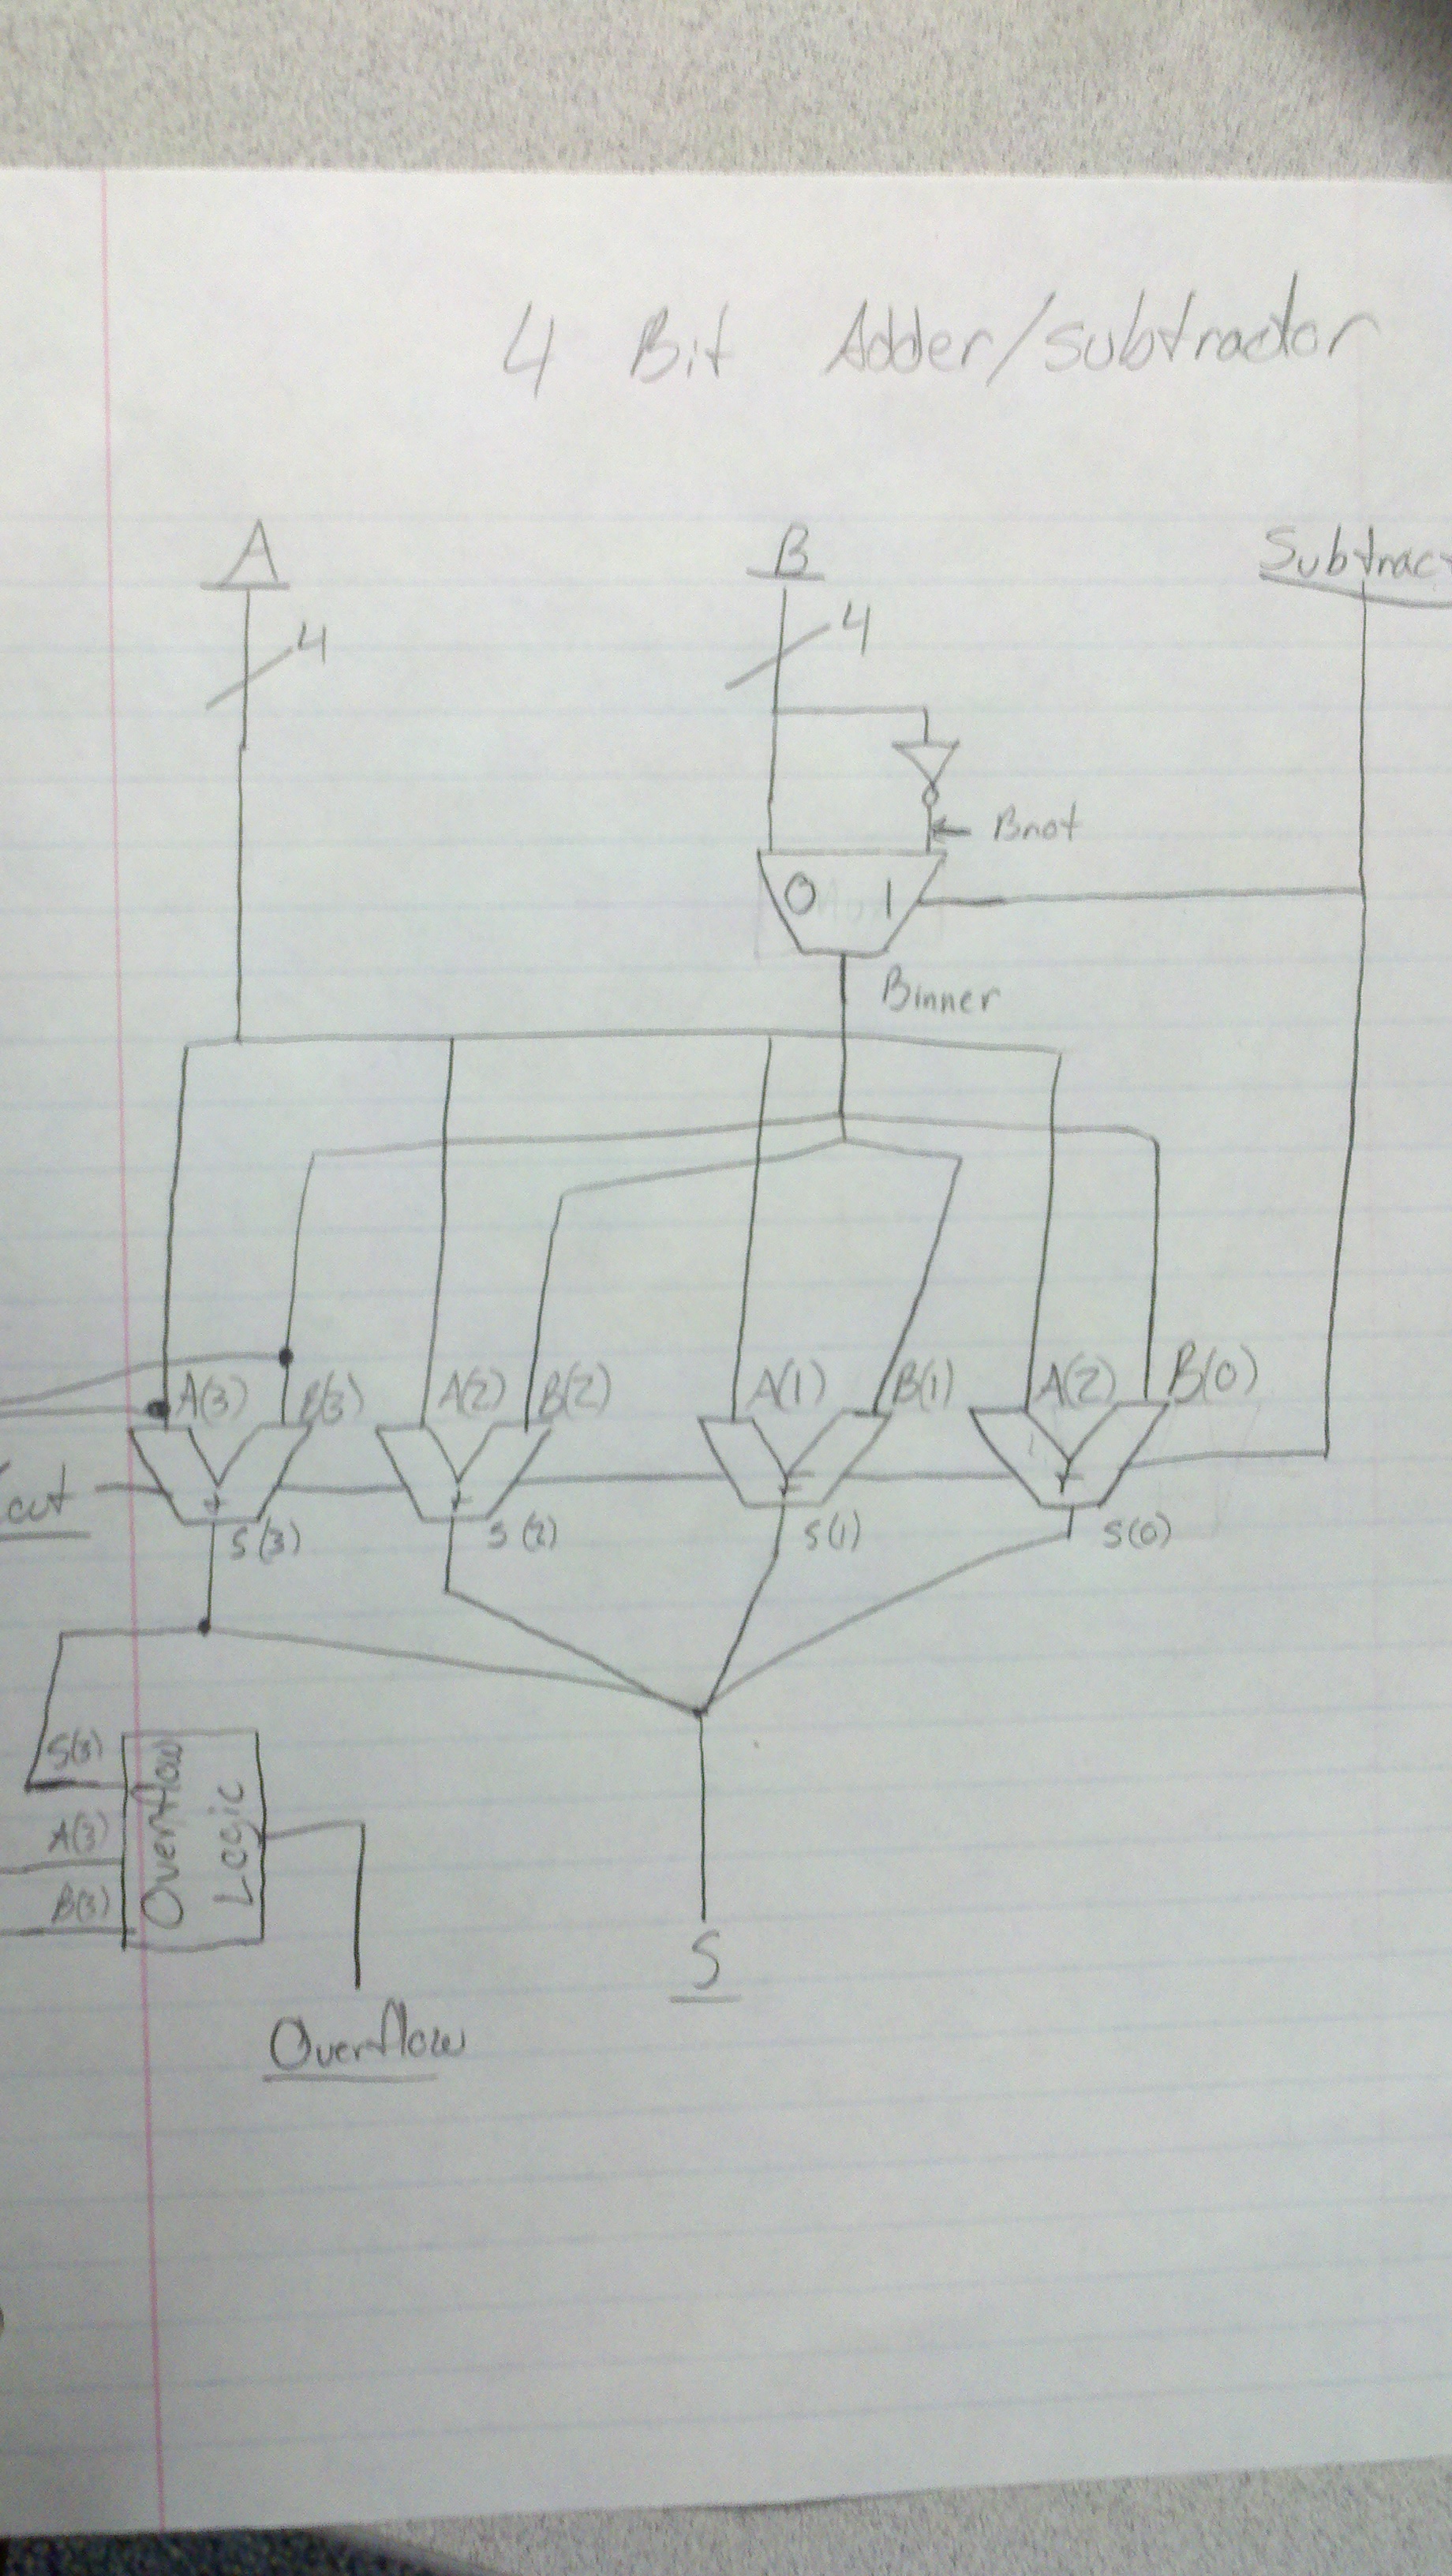 4 Bit Adder/subtractor
A B Subtract
4 4
Bnot
0 1
Binner
A(3) B(3) A(2) B(2) A(1) B(1) A(2) B(0)
+ + + +
out
S(3) S(2) S(1) S(0)
S(3)
A(3)
B(3)
Overflow
Logic
S
Overflow